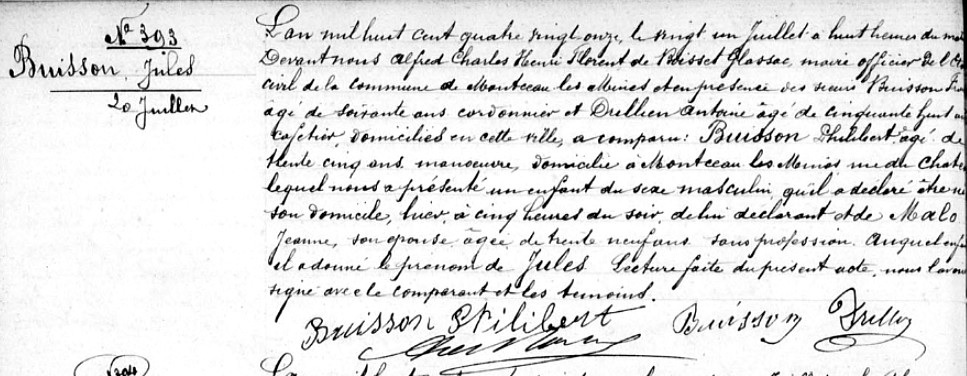 No 393
Buisson Jules
20 Juillet
L'an mil huit cent quatre vingt onze, le vingt un Juillet à huit heures du
Devant nous Alfred Charles Henri Florent de Boisset Glassac, maire officier de l'
civil de la commune de Montceau les Mines et en présence des sieurs Buisson
âgé de soixante ans cordonnier et Dullien Antoine âgé de cinquante huit
cafetier, domiciliés en cette ville, a comparu: Buisson Philibert, âgé de
trente cinq ans, manoeuvre, domicilié à Montceau les Mines rue du
lequel nous a présenté un enfant du sexe masculin qu'il a déclaré être
son domicile, hier, à cinq heures du soir, de lui déclarant et de Malo
Jeanne, son épouse âgée de trente neuf ans sans profession. Auquel
il a donné le prénom de Jules Lecture faite du présent acte, nous l'avons
signé avec le comparant et les témoins.
Buisson Philibert Buisson